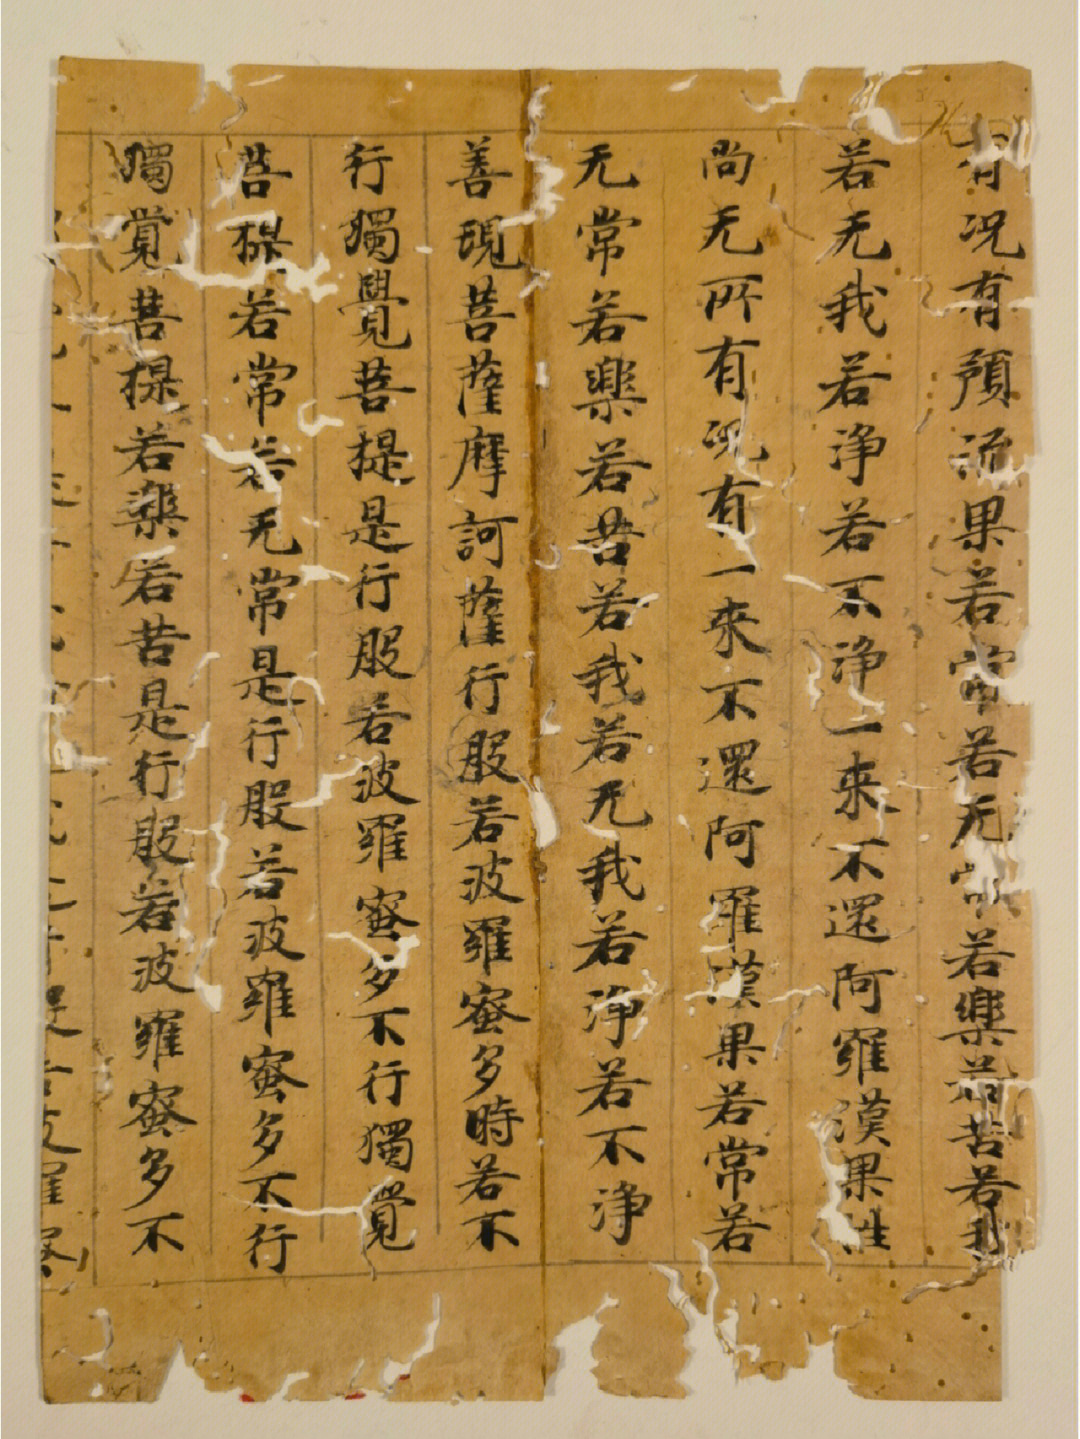 有况有預流果若常若无常若樂若苦若我
若无我若浄若不浄一来不還阿羅漢果性
尚无所有况有一來不還阿羅漢果若常若
无常若樂若苦若我若无我若浄若不浄
善現菩薩摩訶薩行般若波羅蜜多時若不
行獨覺菩提是行般若波羅蜜多不行獨覺
菩提若常若无常是行般若波羅蜜多不行
獨覺菩提若樂若苦是行般若波羅蜜多不
提若波羅蜜